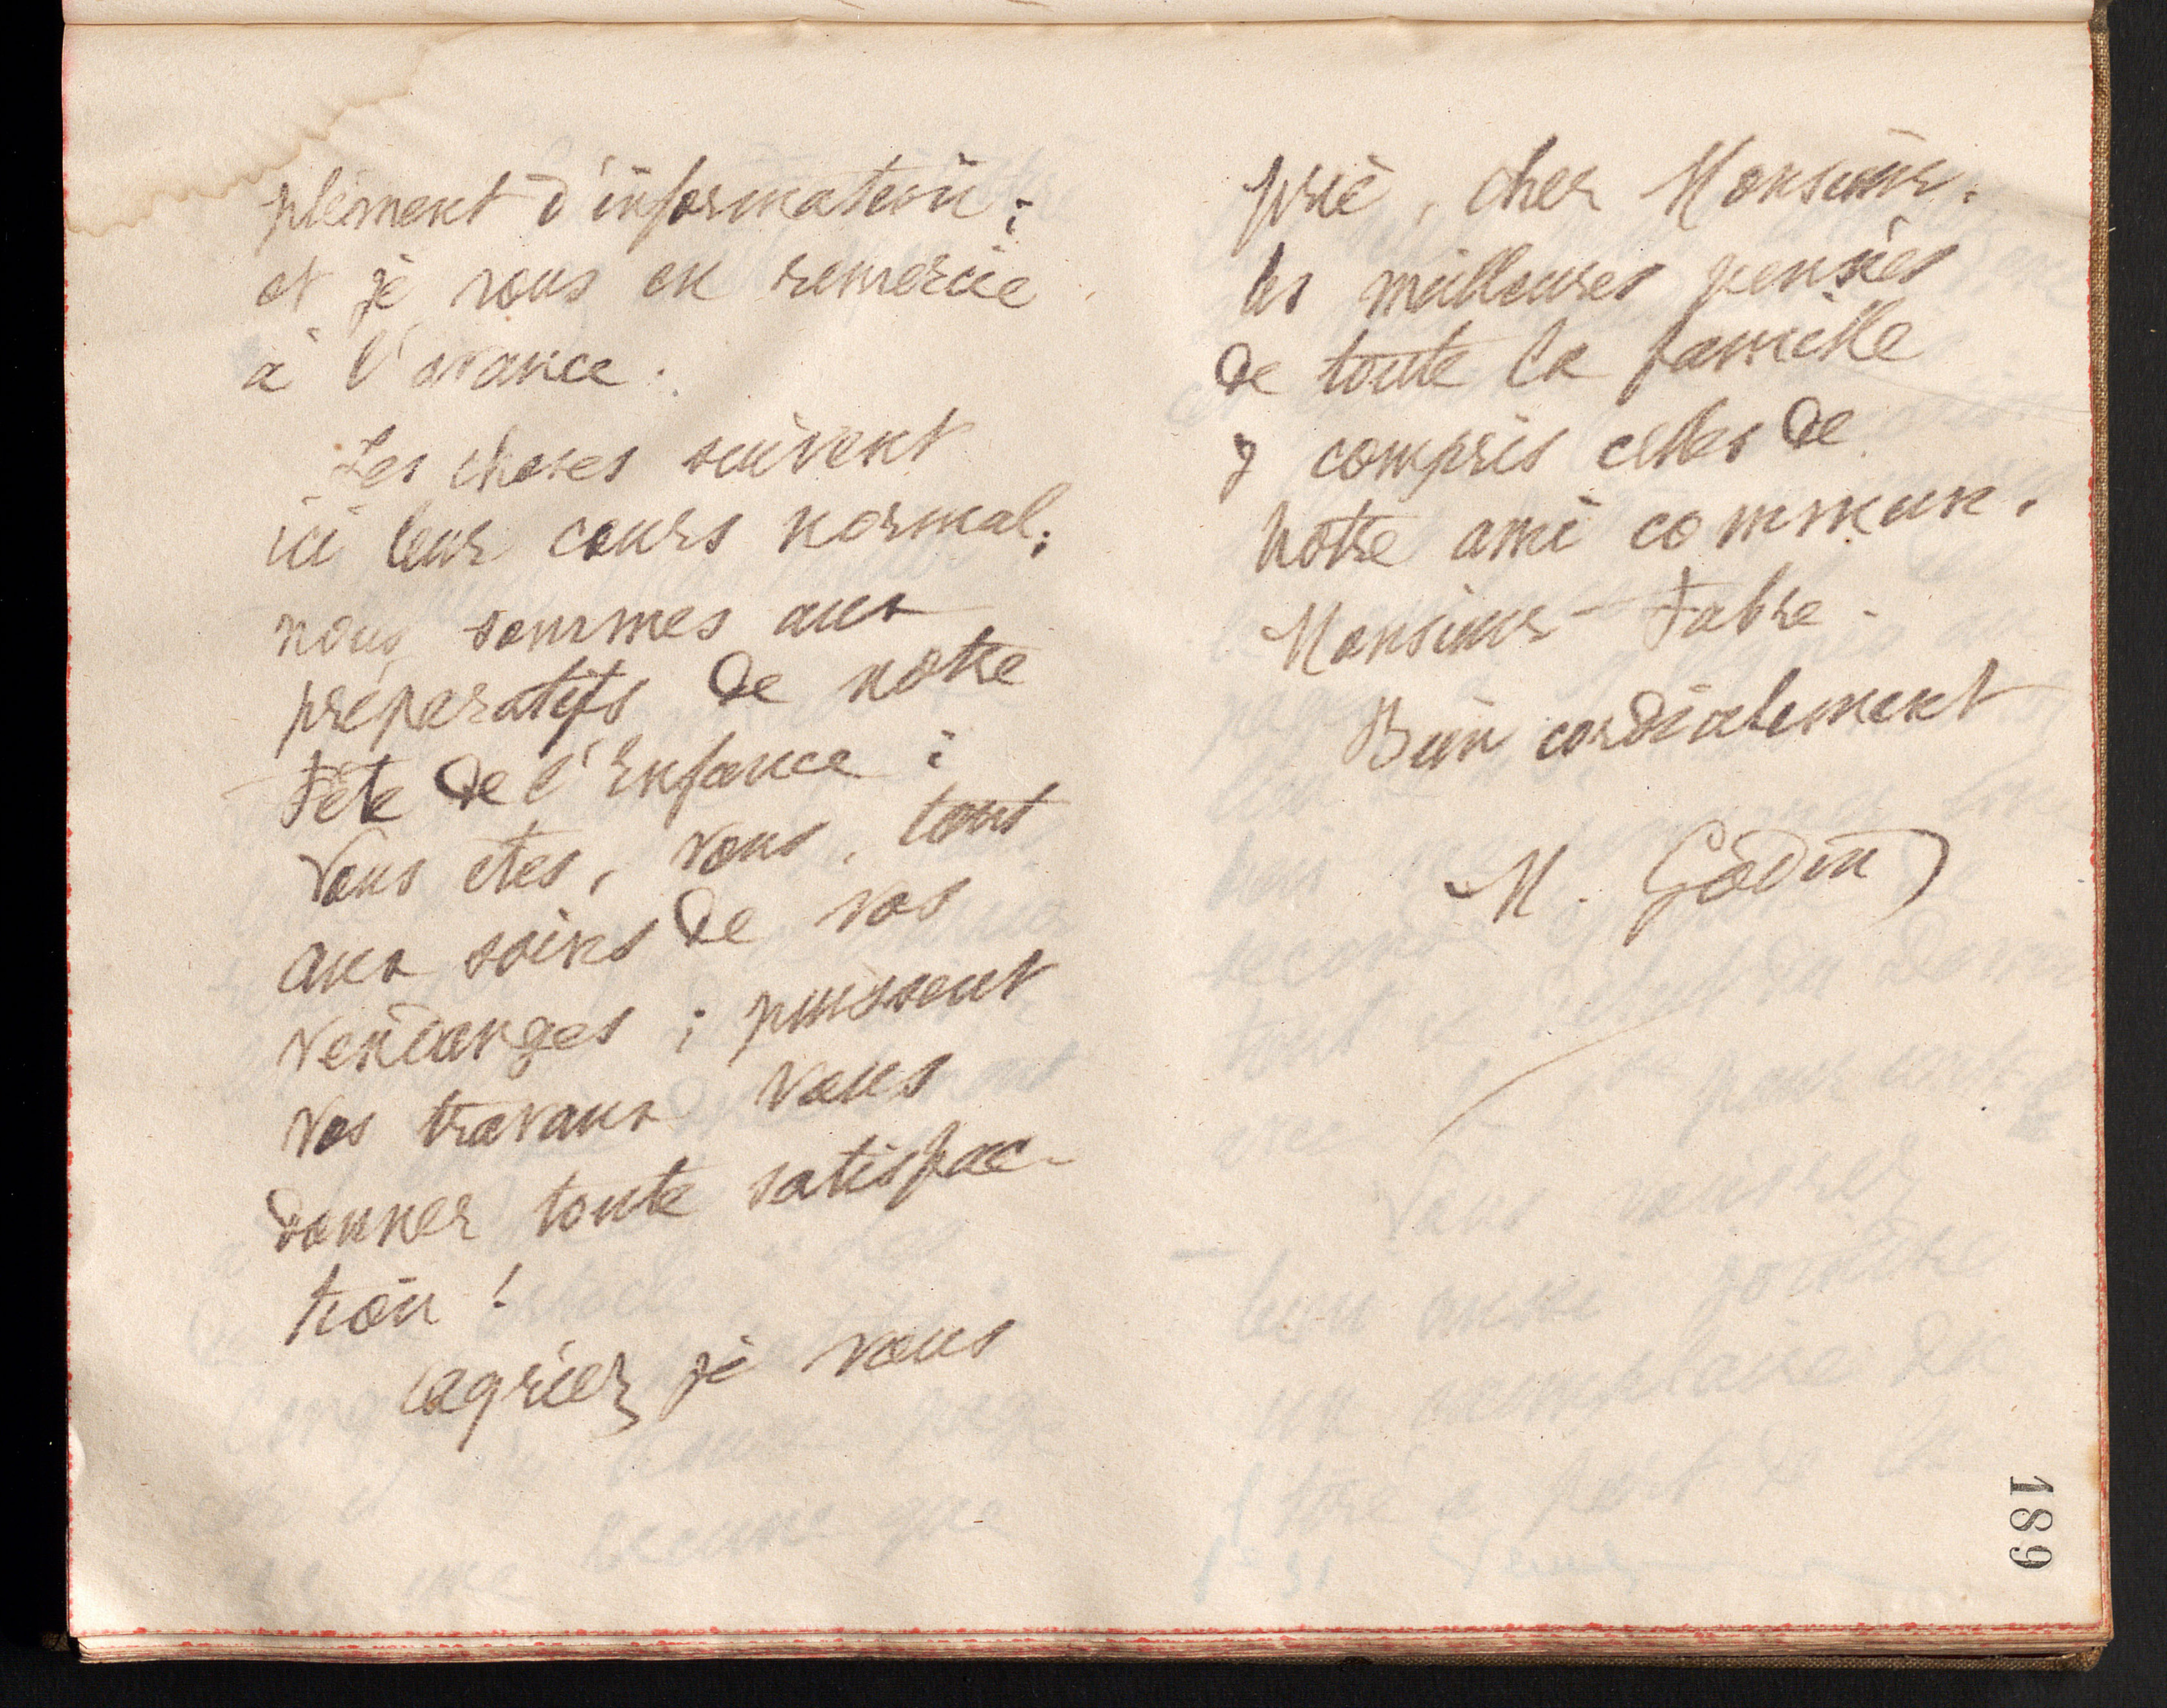 plément d'information ;
et je vous en remercie
à l'avance.
Les choses suivent
ici leur cours normal ;
nous sommes aux
préparatifs de notre
Fête de l'Enfance ;
vous etes, vous, tout
aux soins de vos
vendanges ; puissent
vos travaux vous
donner toute satisfac-
tion !
agréez je vous
prie, cher Monsieur,
les meilleures pensées
de toute la famille
y compris celles de
notre ami commun,
Monsieur Fabre.
Bien cordialement
M. Godin
189